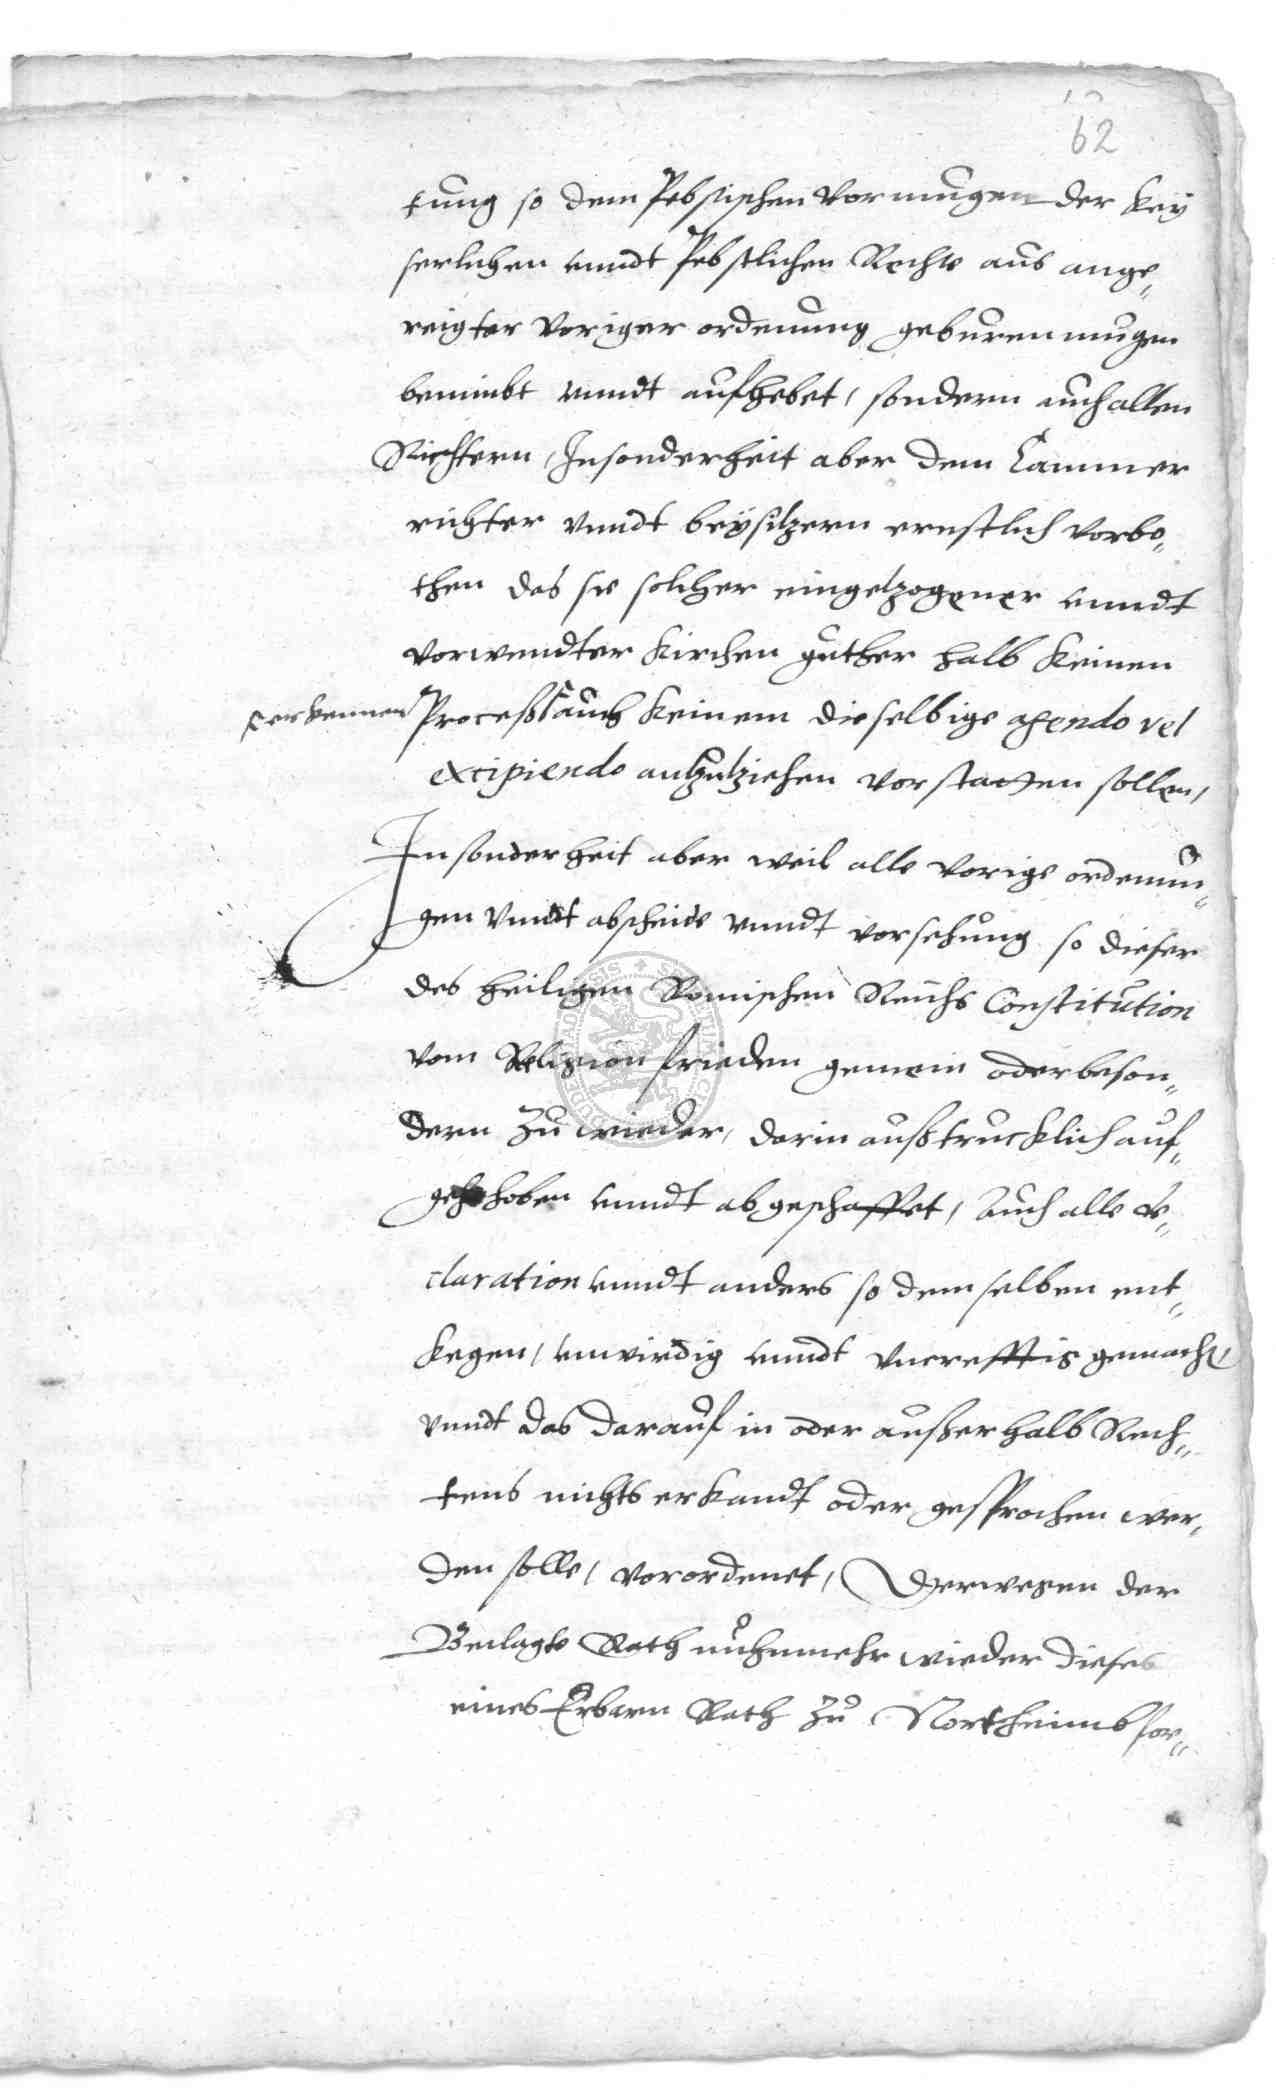 62
tung so dem Pebstischen vormugen der Key
serlichen vnndt Pebstlichen Rechte aus ange„
reigter voriger ordenung geburen mugen
benimbt vnndt aufhebet, sondern auch allen
Richtern, Insonderheit aber dem Cammer
richter vnndt beysitzern ernstlich vorbo„
then das sie solcher eingetzogener vnndt
vorwendter Kirchen guther halb keinen
erkennen Proceß auch keinem dieselbige agendo vel
excipiendo antzutziehen vorstatten sollen,
Insonderheit aber weil alle vorige ordenun„
gen vnndt abscheide vnndt vorsehung so dieser
des heiligen Romischen Reichs Constitution
vom Religion frieden gemein oder beson„
dern zu wieder, darin außtrucklich auf„
gehoben vnndt abgeschaffet, Auch alle de„
claration vnndt anders so demselben ent„
kegen, vnwirdig vnndt vncrefftig gemacht,
vnndt das darauf in oder außerhalb Rech„
tens nichts erkandt oder gesprochen wer„
den solle, vorordenet, Derwegen der
Beclagte Rath nuhnmehr wieder dieses
eines Erbarn Rath zu Northeimb for„